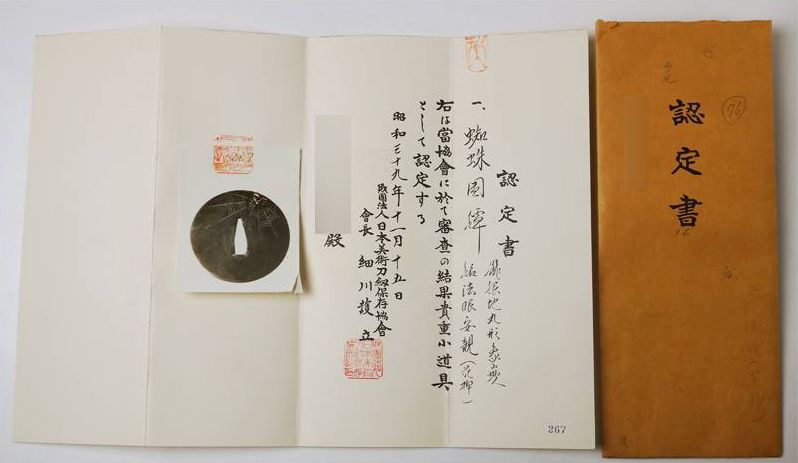 認定書
一、蜘蛛図鐔
朧銀地丸形象嵌
銘法眼安親(花押)
右は當協會に於て審査の結果貴重小道具
として認定する
昭和三十九年十一月十五日
財団法人日本美術刀剣保存協會
會長 細川護立
殿
267
認定書
76